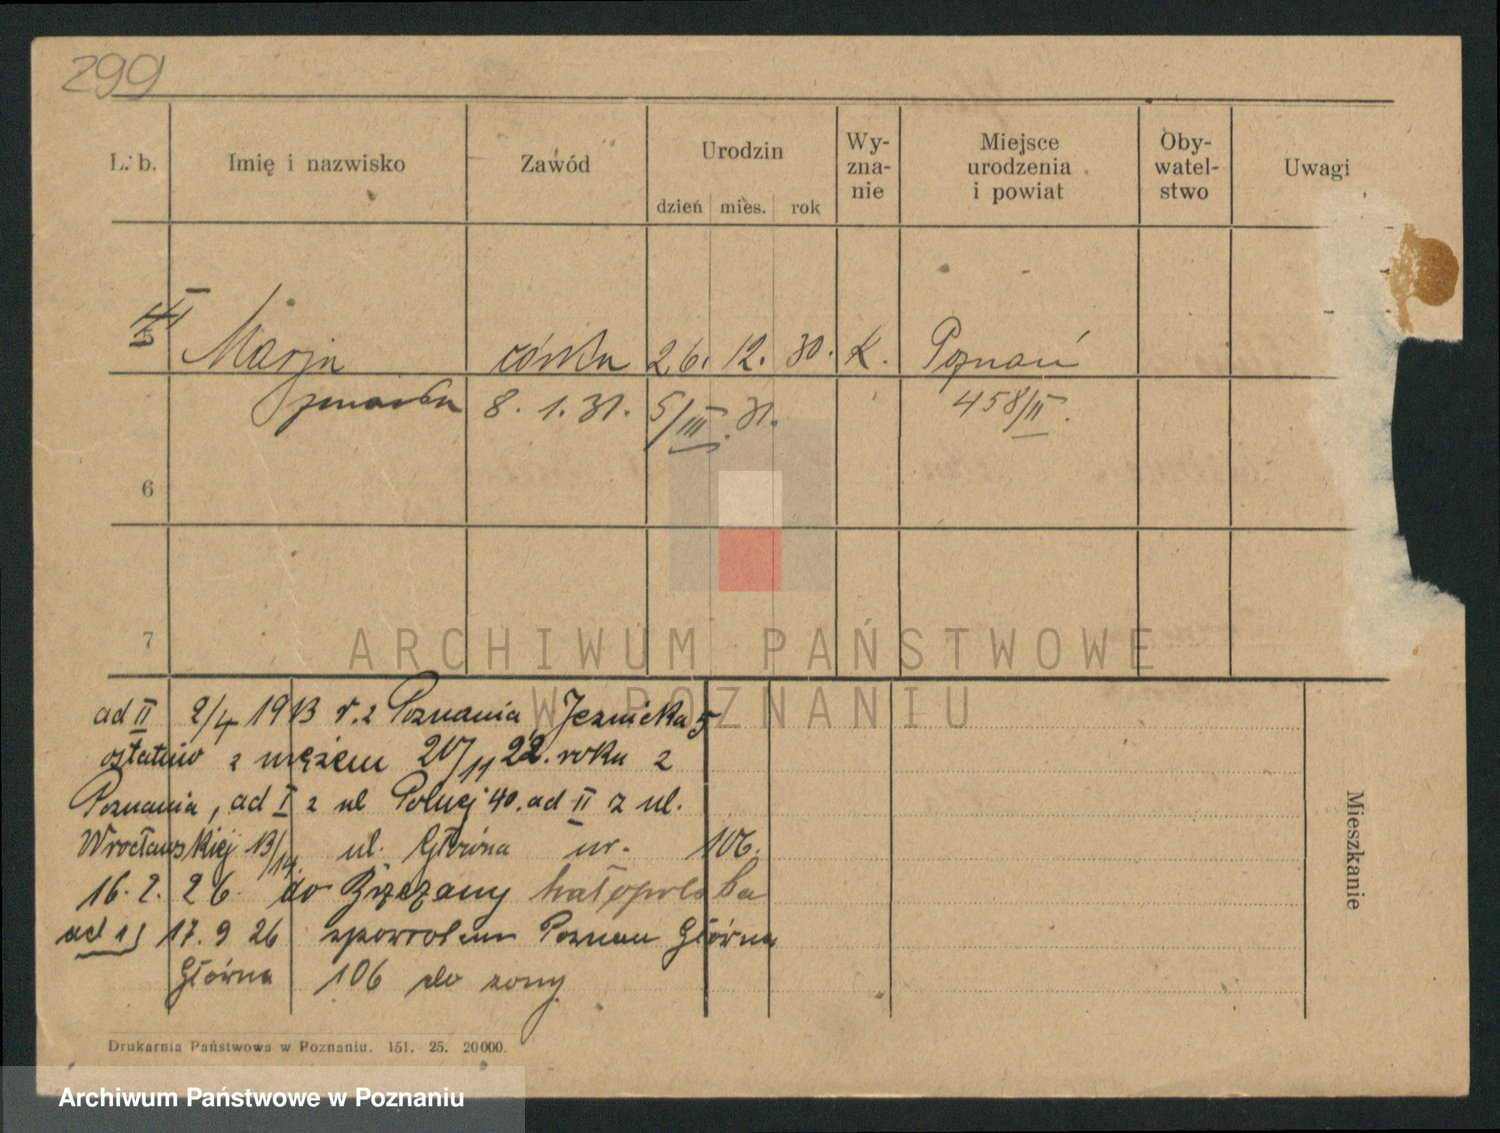 299
L. b. Imię i nazwisko Zawód Urodzin Wy-zna-nie Miejsce urodzenia i powiat Oby-watel-stwo Uwagi
dzień mies. rok
Marja córka 26. 12. 30. K. Poznań
8. 1. 31. 5/III. 31. 458/II.
6
7
ARCHIWUM PAŃSTWOWE
W POZNANIU
ad II 2/4 1913 r. z Poznania Jeznicka 5
ostatnio z mężem 20/11 22. roku z
Poznania, ad I z ul Polnej 40. ad II z ul.
Wrocławskiej 13/14. ul. Główna nr. 106.
16. 2. 26 do Brzezany małopolska
ad 1) 17. 9 26 zpowrotem Poznan Główna
Główna 106 do zony
Mieszkanie
Drukarnia Państwowa w Poznaniu. 151. 25. 20000.
Archiwum Państwowe w Poznaniu